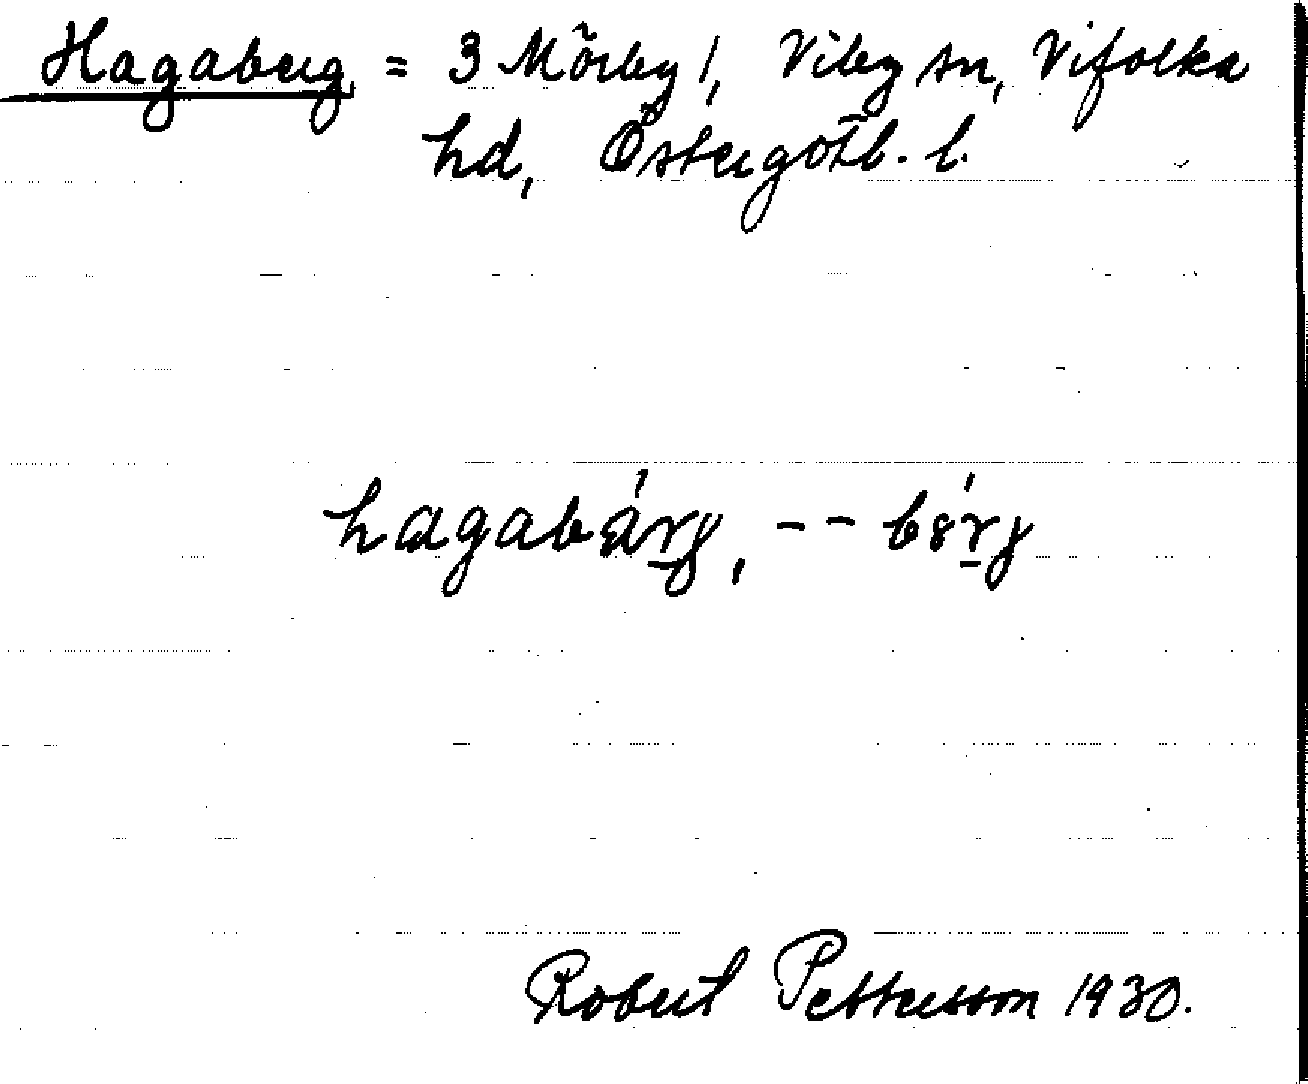 Hagaberg = 3 Mörby 1, Viby sn, Vifolka
hd, Östergötl. l.
hagabárg, -- bérg
Robert Pettersson 1930.